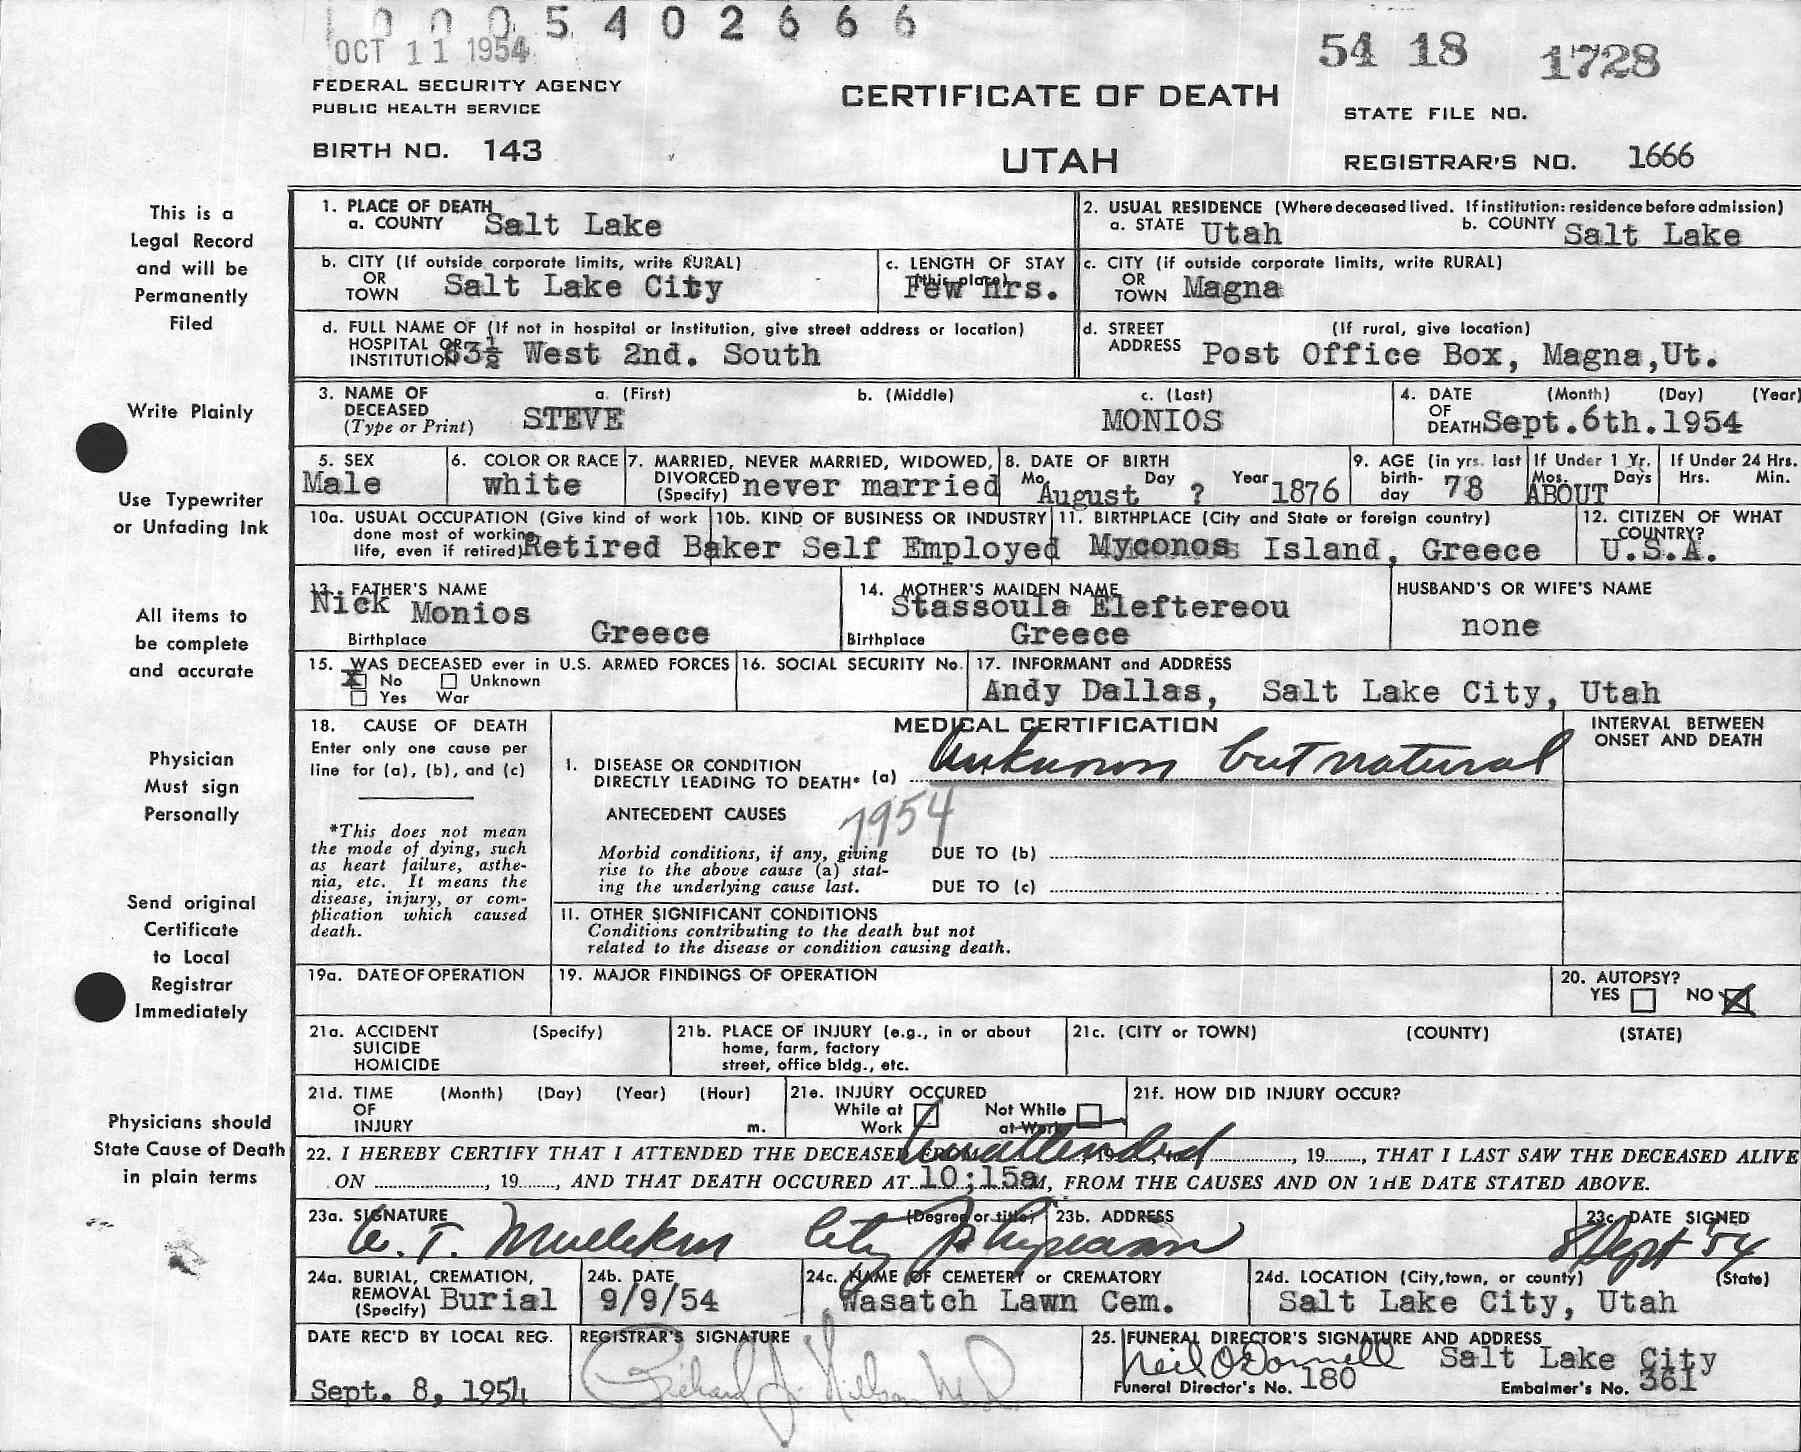 0 0 0 5 4 0 2 6 6 6
OCT 11 1954
54 18 1728
FEDERAL SECURITY AGENCY
PUBLIC HEALTH SERVICE
CERTIFICATE OF DEATH
STATE FILE NO.
BIRTH NO. 143
UTAH
REGISTRAR'S NO. 1666
This is a
Legal Record
and will be
Permanently
Filed
Write Plainly
Use Typewriter
or Unfading Ink
All items to
be complete
and accurate
Physician
Must sign
Personally
Send original
Certificate
to Local
Registrar
Immediately
Physicians should
State Cause of Death
in plain terms
1. PLACE OF DEATH
a. COUNTY Salt Lake
2. USUAL RESIDENCE (Where deceased lived. If institution: residence before admission)
a. STATE Utah b. COUNTY Salt Lake
b. CITY (If outside corporate limits, write RURAL)
OR
TOWN Salt Lake City
c. LENGTH OF STAY
(this place)
Few hrs.
c. CITY (if outside corporate limits, write RURAL)
OR
TOWN Magna
d. FULL NAME OF (If not in hospital or Institution, give street address or location)
HOSPITAL OR
INSTITUTION 63½ West 2nd. South
d. STREET (If rural, give location)
ADDRESS Post Office Box, Magna,Ut.
3. NAME OF a. (First) b. (Middle) c. (Last)
DECEASED
(Type or Print) STEVE MONIOS
4. DATE (Month) (Day) (Year)
OF
DEATH Sept.6th.1954
5. SEX
Male
6. COLOR OR RACE
white
7. MARRIED, NEVER MARRIED, WIDOWED,
DIVORCED
(Specify) never married
8. DATE OF BIRTH
Mo. Day Year
August ? 1876
9. AGE (in yrs. last
birth-
day 78
If Under 1 Yr.
Mos. Days
ABOUT
If Under 24 Hrs.
Hrs. Min.
10a. USUAL OCCUPATION (Give kind of work
done most of working
life, even if retired) Retired Baker
10b. KIND OF BUSINESS OR INDUSTRY
Self Employed
11. BIRTHPLACE (City and State or foreign country)
Myconos Island, Greece
12. CITIZEN OF WHAT
COUNTRY?
U.S.A.
13. FATHER'S NAME
Nick Monios
Birthplace Greece
14. MOTHER'S MAIDEN NAME
Stassoula Eleftereou
Birthplace Greece
HUSBAND'S OR WIFE'S NAME
none
15. WAS DECEASED ever in U.S. ARMED FORCES
X No Unknown
Yes War
16. SOCIAL SECURITY No.
17. INFORMANT and ADDRESS
Andy Dallas, Salt Lake City, Utah
18. CAUSE OF DEATH
Enter only one cause per
line for (a), (b), and (c)
*This does not mean
the mode of dying, such
as heart failure, asthe-
nia, etc. It means the
disease, injury, or com-
plication which caused
death.
MEDICAL CERTIFICATION
I. DISEASE OR CONDITION
DIRECTLY LEADING TO DEATH* (a) Unknown but natural
ANTECEDENT CAUSES
7954
Morbid conditions, if any, giving
rise to the above cause (a) stat-
ing the underlying cause last.
DUE TO (b)
DUE TO (c)
II. OTHER SIGNIFICANT CONDITIONS
Conditions contributing to the death but not
related to the disease or condition causing death.
INTERVAL BETWEEN
ONSET AND DEATH
19a. DATE OF OPERATION
19. MAJOR FINDINGS OF OPERATION
20. AUTOPSY?
YES NO X
21a. ACCIDENT (Specify)
SUICIDE
HOMICIDE
21b. PLACE OF INJURY (e.g., in or about
home, farm, factory
street, office bldg., etc.
21c. (CITY or TOWN) (COUNTY) (STATE)
21d. TIME (Month) (Day) (Year) (Hour)
OF
INJURY m.
21e. INJURY OCCURED
While at
Work
Not While
at Work
21f. HOW DID INJURY OCCUR?
22. I HEREBY CERTIFY THAT I ATTENDED THE DECEASED FROM unattended, 19, to, 19, THAT I LAST SAW THE DECEASED ALIVE
ON, 19, AND THAT DEATH OCCURED AT 10;15a M, FROM THE CAUSES AND ON THE DATE STATED ABOVE.
23a. SIGNATURE (Degree or title)
City Physician
23b. ADDRESS
23c. DATE SIGNED
8 Sept '54
24a. BURIAL, CREMATION,
REMOVAL
(Specify) Burial
24b. DATE
9/9/54
24c. NAME OF CEMETERY or CREMATORY
Wasatch Lawn Cem.
24d. LOCATION (City, town, or county) (State)
Salt Lake City, Utah
DATE REC'D BY LOCAL REG.
Sept. 8, 1954
REGISTRAR'S SIGNATURE
Richard J. Nielson M.D.
25. FUNERAL DIRECTOR'S SIGNATURE AND ADDRESS
Neil O'Donnell Salt Lake City
Funeral Director's No. 180 Embalmer's No. 361